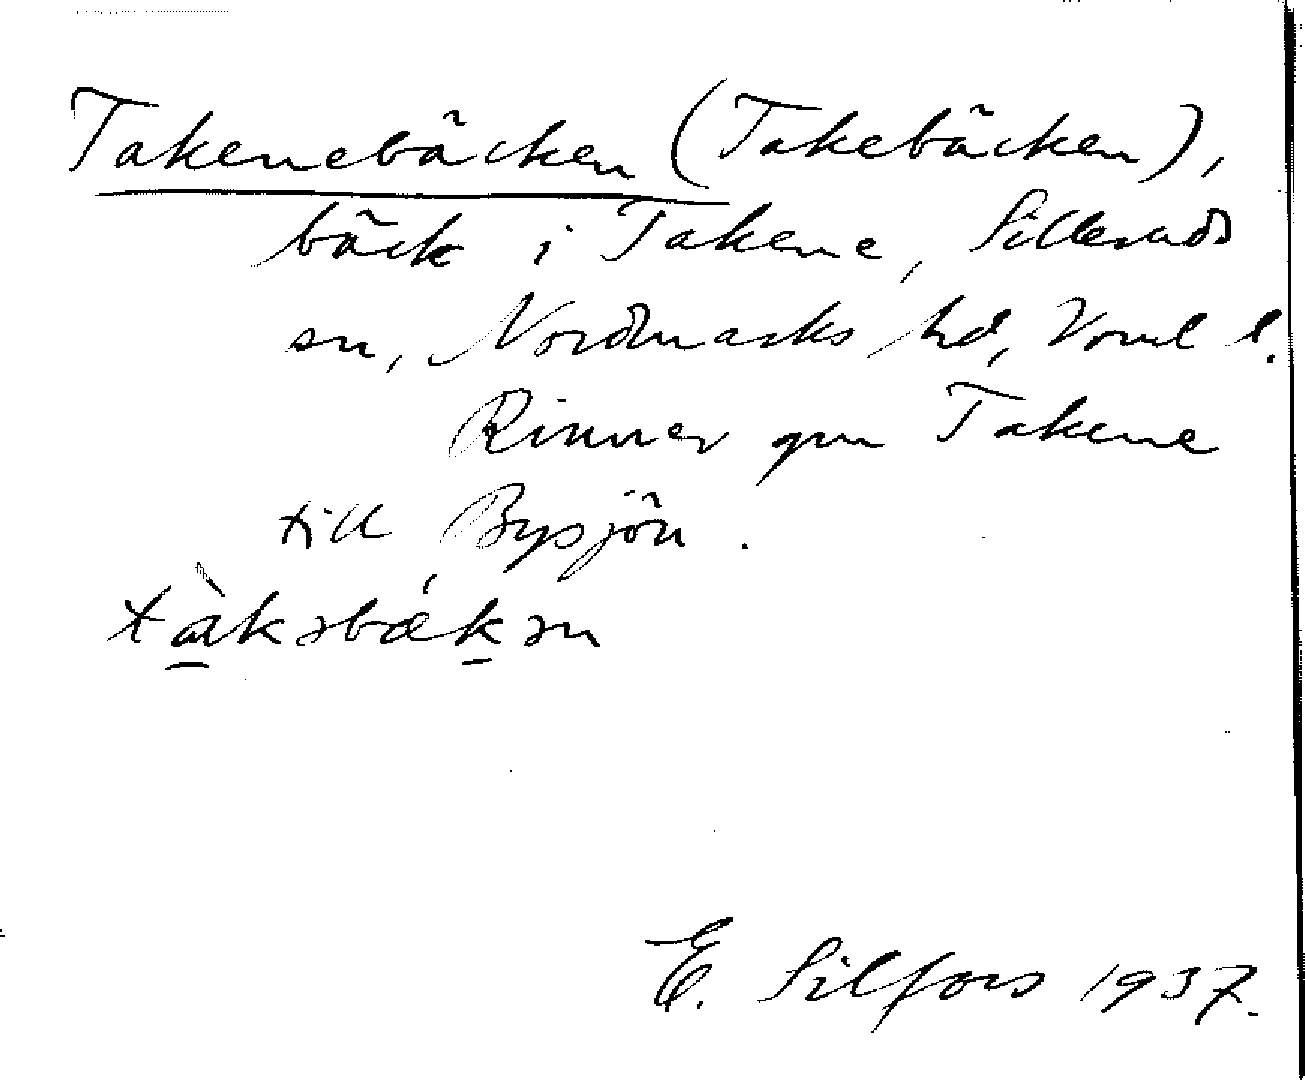 Takenebäcken (Takebäcken),
bäck i Takene, Silleruds
sn, Nordmarks hd, Verml l.
Rinner gm Takene
till Bysjön.
tàkəbǽkən
E. Silfors 1937.